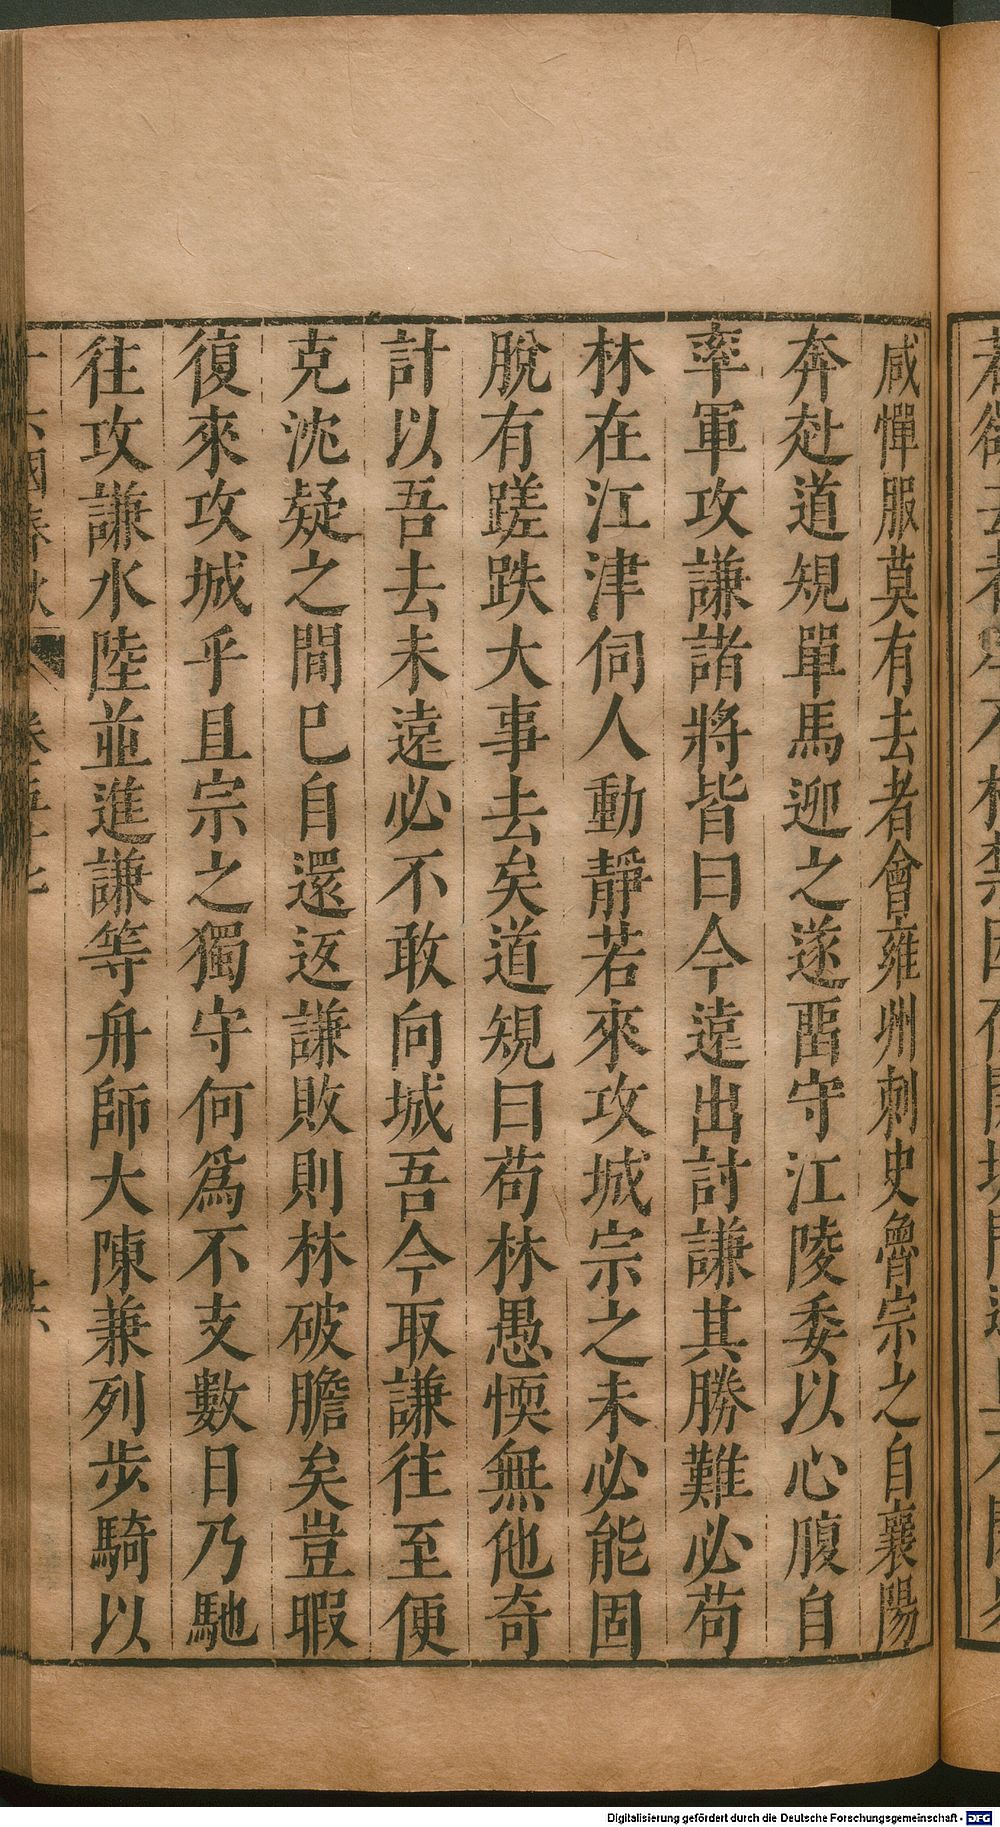 咸憚服莫有去者會雍州刺史魯宗之自襄陽
奔赴道規單馬迎之遂畱守江陵委以心腹自
率軍攻謙諸將皆曰今遠出討謙其勝難必苟
林在江津伺人動靜若來攻城宗之未必能固
脫有蹉跌大事去矣道規曰苟林愚愞無他奇
計以吾去未遠必不敢向城吾今取謙往至便
克沈疑之間巳自還返謙敗則林破膽矣豈暇
復來攻城乎且宗之獨守何爲不支數日乃馳
往攻謙水陸並進謙等舟師大陳兼列步騎以
國春秋
Digitalisierung gefördert durch die Deutsche Forschungsgemeinschaft - DFG